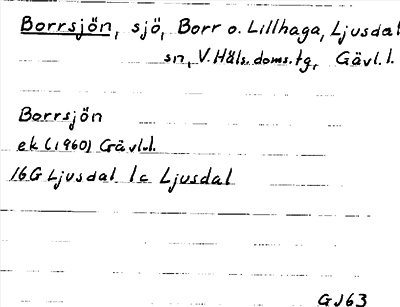 Borrsjön, sjö, Borr o. Lillhaga, Ljusdal
sn, V. Häls. doms. tg, Gävl. l.
Borrsjön
ek (1960) Gävl.l.
16G Ljusdal 1c Ljusdal
GJ63